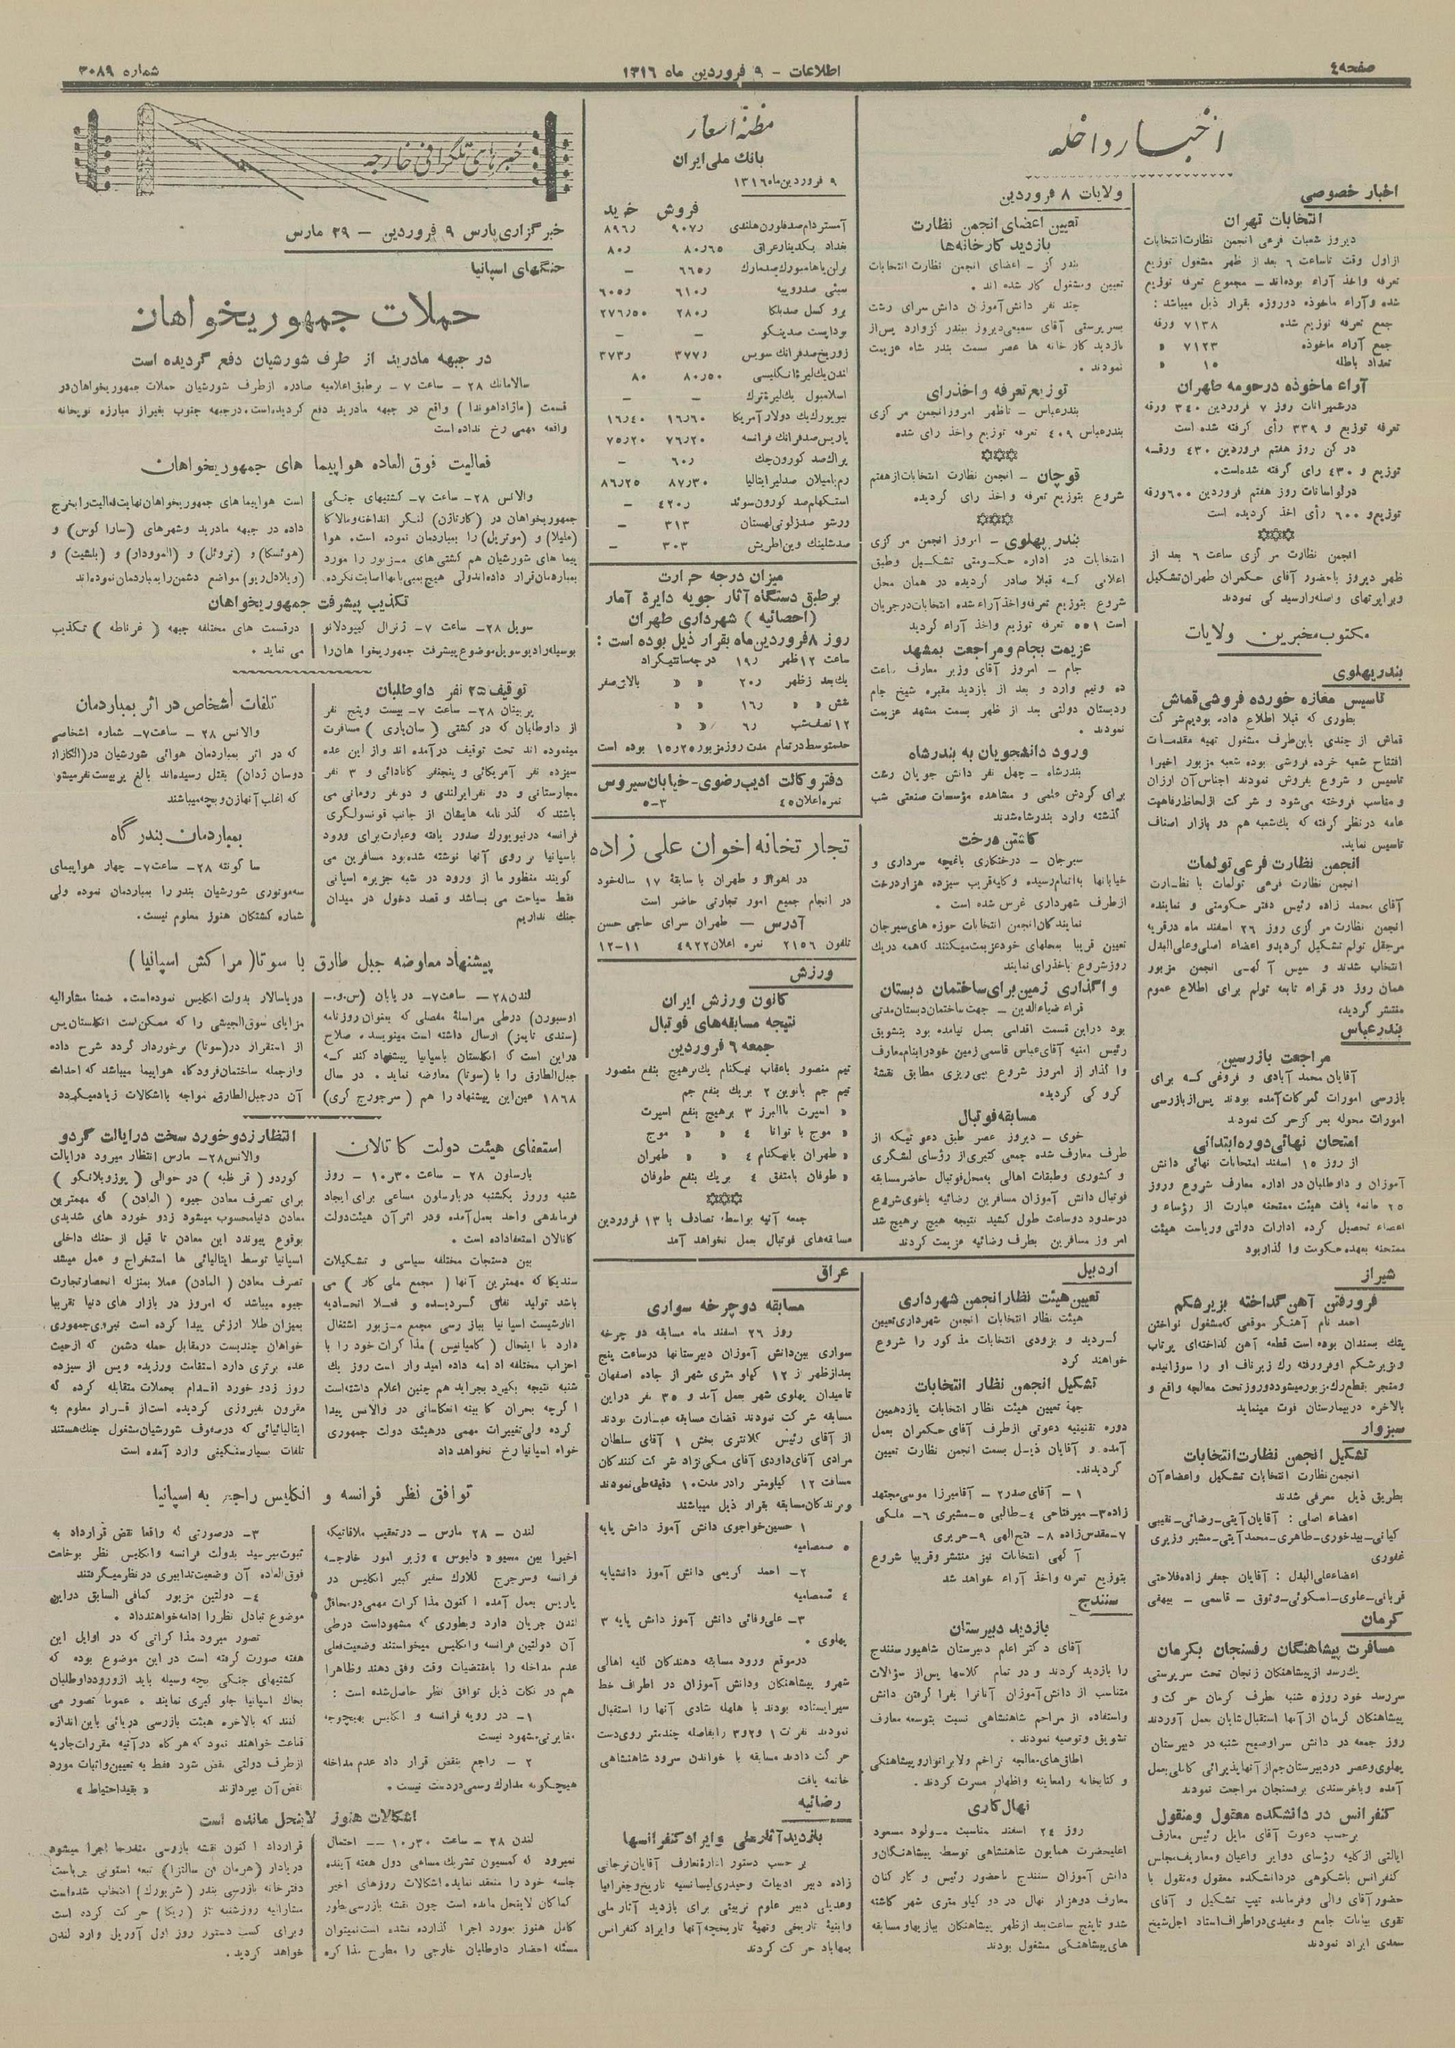 صفحه ٤
اطلاعات - ٩ فروردین ماه ١٣١٦
شماره ٣٠٨٩
اخبار داخله
اخبار خصوصی
انتخابات تهران
دیروز شعبات فرعی انجمن نظارت انتخابات
از اول وقت تا ساعت ٦ بعد از ظهر مشغول توزیع
تعرفه واخذ آراء بوده‌اند - مجموع تعرفه توزیع
شده و آراء ماخوذه دوروزه بقرار ذیل میباشد :
جمع تعرفه توزیع شده ٧١٣٨ ورقه
جمع آراء ماخوذه ٧١٢٣ «
تعداد باطله ١٥ «
آراء ماخوذه در حومه طهران
در شمیرانات روز ٧ فروردین ٣٤٠ ورقه
تعرفه توزیع و ٣٣٩ رأی گرفته شده است
در کن روز هفتم فروردین ٤٣٠ ورقه
توزیع و ٤٣٠ رای گرفته شده‌است.
در لواسانات روز هفتم فروردین ٦٠٠ ورقه
توزیع و ٦٠٠ رأی اخذ گردیده است
انجمن نظارت مرکزی ساعت ٦ بعد از
ظهر دیروز با حضور آقای حکمران طهران تشکیل
مکتوب مخبرین ولایات
بندر پهلوی
تاسیس مغازه خورده فروشی قماش
بطوری که قبلا اطلاع داده بودیم شرکت
قماش از چندی باین‌طرف مشغول تهیه مقدمات
افتتاح شعبه خرده فروشی بوده شعبه مزبور اخیرا
تاسیس و شروع بفروش نمودند اجناس آن ارزان
و مناسب فروخته می‌شود و شرکت از لحاظ رفاهیت
عامه در نظر گرفته که یک‌شعبه هم در بازار اصناف
تاسیس نماید.
انجمن نظارت فرعی تولمات
انجمن نظارت فرعی تولمات با نظارت
آقای محمد زاده رئیس دفتر حکومتی و نماینده
انجمن نظارت مرکزی روز ٢٦ اسفند ماه در قریه
مرجقل تولم تشکیل گردید و اعضاء اصلی و علی البدل
انتخاب شدند و سپس آگهی انجمن مزبور
همان روز در قراء تابعه تولم برای اطلاع عموم
منتشر گردید.
بندر عباس
مراجعت بازرسین
آقایان محمد آبادی و فروغی که برای
بازرسی امورات گمرکات آمده بودند پس از بازرسی
امورات محوله بمرکز حرکت نمودند
امتحان نهائی دوره ابتدائی
از روز ١٥ اسفند امتحانات نهائی دانش
آموزان و داوطلبان در اداره معارف شروع و روز
٢٥ خاتمه یافت هیئت ممتحنه عبارت از رؤساء و
اعضاء تحصیل کرده ادارات دولتی و ریاست هیئت
ممتحنه بعهده حکومت واگذار بود
شیراز
فرورفتن آهن گداخته بزیر شکم
احمد نام آهنگر موقعی که مشغول نواختن
پتک بسندان بوده است قطعه آهن گداخته‌ای پرتاب
بالاخره در بیمارستان فوت مینماید
سبزوار
تشکیل انجمن نظارت انتخابات
انجمن نظارت انتخابات تشکیل و اعضاء آن
بطریق ذیل معرفی شدند
اعضاء اصلی : آقایان آیتی - رضائی - نقیبی
کیانی - بیدخوری - طاهری - محمد آیتی - مشیر وزیری
غفوری
اعضاء علی البدل : آقایان جعفر زاده فلاحتی
قربانی - علوی - اسکوئی - وثوق - قاسمی - بیهقی
کرمان
مسافرت پیشاهنگان رفسنجان بکرمان
یک‌رسد از پیشاهنگان زنجان تحت سرپرستی
سررسد خود روز ٥ شنبه بطرف کرمان حرکت و
پیشاهنگان کرمان از آنها استقبال شایان بعمل آوردند
روز جمعه در دانش سرا و صبح شنبه در دبیرستان
پهلوی و عصر در دبیرستان جم از آنها پذیرائی کاملی بعمل
آمده و با خرسندی برفسنجان مراجعت نمودند
کنفرانس در دانشکده معقول و منقول
برحسب دعوت آقای مایل رئیس معارف
ایالتی از کلیه رؤسای دوایر و اعیان و معاریف مجلس
کنفرانس باشکوهی در دانشکده معقول و منقول با
حضور آقای والی و فرمانده تیپ تشکیل و آقای
تقوی بیانات جامع و مفیدی در اطراف استاد اجل شیخ
سعدی ایراد نمودند
ولایات ٨ فروردین
تعیین اعضای انجمن نظارت
بازدید کارخانه‌ها
بندر گز - اعضای انجمن نظارت انتخابات
تعیین و مشغول کار شده اند .
چند نفر دانش آموزان دانش سرای رشت
بسرپرستی آقای سمیعی دیروز ببندر گز وارد پس از
بازدید کار خانه ها عصر سمت بندر شاه عزیمت
نمودند .
توزیع تعرفه و اخذ رای
بندر عباس - تا ظهر امروز انجمن مرکزی
بندرعباس ٤٠٩ تعرفه توزیع و اخذ رای شده
قوچان - انجمن نظارت انتخابات از هفتم
شروع بتوزیع تعرفه و اخذ رای گردید
بندر پهلوی - امروز انجمن مرکزی
انتخابات در اداره حکومتی تشکیل و طبق
اعلانی که قبلا صادر گردیده در همان محل
شروع بتوزیع تعرفه و اخذ آراء شده انتخابات در جریان
است ٥٥١ تعرفه توزیع و اخذ آراء گردید
عزیمت بجام و مراجعت بمشهد
جام - امروز آقای وزیر معارف ساعت
ده ونیم وارد و بعد از بازدید مقبره شیخ جام
و دبستان دولتی بعد از ظهر بسمت مشهد عزیمت
نمودند .
ورود دانشجویان به بندر شاه
بندر شاه - چهل نفر دانش جویان رشت
برای گردش علمی و مشاهده مؤسسات صنعتی شب
گذشته وارد بندر شاه شدند
کاشتن درخت
سیرجان - درختکاری باغچه سرداری و
خیابانها به اتمام رسیده و کلیه قریب سیزده هزار درخت
از طرف شهرداری غرس شده است .
نمایندگان انجمن انتخابات حوزه های سیرجان
تعیین قریبا بمحلهای خود عزیمت میکنند که همه در یک
روز شروع باخذ رای نمایند
واگذاری زمین برای ساختمان دبستان
قراء ضیاء الدین - جهت ساختمان دبستان مدتی
بود در این قسمت اقدامی بعمل نیامده بود بتشویق
رئیس امنیه آقای عباس قاسمی زمین خود را بنام معارف
واگذار از امروز شروع بپی ریزی مطابق نقشه
کروکی گردید.
مسابقه فوتبال
خوی - دیروز عصر طبق دعوتیکه از
طرف معارف شده جمعی کثیری از رؤسای لشگری
و کشوری و طبقات اهالی به محل فوتبال حاضر مسابقه
فوتبال دانش آموزان مسافرین رضائیه با خوی شروع
در حدود دو ساعت طول کشید نتیجه هیچ بر هیچ شد
امروز مسافرین بطرف رضائیه عزیمت کردند
اردبیل
تعیین هیئت نظار انجمن شهرداری
هیئت نظار انتخابات انجمن شهرداری تعیین
گردید و بزودی انتخابات مذکور را شروع
خواهند کرد
تشکیل انجمن نظار انتخابات
جهة تعیین هیئت نظار انتخابات یازدهمین
دوره تقنینیه دعوتی از طرف آقای حکمران بعمل
آمده و آقایان ذیل بسمت انجمن نظارت تعیین
گردیدند.
١ - آقای صدر ٢ - آقامیرزا موسی مجتهد
زاده ٣ - میرفتاحی ٤ - طالبی ٥ - مشیری ٦ - ملکی
٧ - مقدس زاده ٨ - فتح الهی ٩ - حریری
آگهی انتخابات نیز منتشر و قریبا شروع
بتوزیع تعرفه و اخذ آراء خواهد شد
سنندج
بازدید دبیرستان
آقای دکتر اعلم دبیرستان شاهپور سنندج
را بازدید کردند و در تمام کلاسها پس از سؤالات
متناسب از دانش آموزان آنانرا بفرا گرفتن دانش
واستفاده از مراحم شاهنشاهی نسبت بتوسعه معارف
تشویق و توصیه نمودند .
و کتابخانه را معاینه و اظهار مسرت کردند .
نهال کاری
روز ٢٤ اسفند بمناسبت مولود مسعود
اعلیحضرت همایون شاهنشاهی توسط پیشاهنگان و
دانش آموزان سنندج با حضور رئیس و کارکنان
معارف دوهزار نهال در دو کیلو متری شهر کاشته
شد و تا پنج ساعت بعد از ظهر پیشاهنگان ببازیها و مسابقه
های پیشاهنگی مشغول بودند
مظنه اسعار
بانک ملی ایران
٩ فروردین ماه ١٣١٦
فروش خرید
آمستردام صد فلورن هلندی ٩٠٧ر ٨٩٦ر
بغداد یکدینار عراقی ٨٠ر٦٥ ٨٠ر
برلن یا هامبورک صد مارک ٦٦٥ر -
بمبئی صد روپیه ٦١٠ر ٦٠٥ر
بروکسل صد بلگا ٢٨٠ر ٢٧٦ر٥٠
بوداپست صد پنگو - -
زوریخ صد فرانک سویس ٣٧٧ر ٣٧٣ر
لندن یک لیره انگلیسی ٨٠ر٥٠ ٨٠
اسلامبول یک لیره ترک - -
نیویورک یک دولار آمریکا ١٦ر٦٠ ١٦ر٤٠
پاریس صد فرانک فرانسه ٧٦ر٢٠ ٧٥ر٢٠
پراک صد کورون چک ٦٠ر -
رم یا میلان صد لیر ایتالیا ٨٧ر٣٠ ٨٦ر٢٥
استکهلم صد کورون سوئد ٤٢٠ر -
ورشو صد زلوتی لهستان ٣١٣ -
صد شلینک وین اطریش ٣٠٣ -
میزان درجه حرارت
بر طبق دستگاه آثار جویه دایرة آمار
(احصائیه) شهرداری طهران
روز ٨ فروردین ماه بقرار ذیل بوده است :
ساعت ١٢ ظهر ١٩ر درجه سانتیگراد
یک بعد ز ظهر ٢٠ر « « بالای صفر
شش « ١٦ر « «
١٢ نصف شب ٦ر « «
حد متوسط در تمام مدت روز مزبور ١٥ر٢٥ بوده است
دفتر وکالت ادیب رضوی - خیابان سیروس
نمره اعلان ٤٥ ٣-٥
تجارتخانه اخوان علی زاده
در اهواز و طهران با سابقهٔ ١٧ ساله خود
در انجام جمیع امور تجارتی حاضر است
آدرس - طهران سرای حاجی حسن
تلفون ٢١٥٦ نمره اعلان ٤٩٢٢ ١١-١٢
ورزش
کانون ورزش ایران
نتیجه مسابقه‌های فوتبال
جمعه ٦ فروردین
تیم منصور با عقاب نیکنام یک بر هیچ بنفع منصور
تیم جم با نوین ٢ بر یک بنفع جم
« اسپرت با البرز ٣ بر هیچ بنفع اسپرت
« موج با توانا ٤ « « موج
« طهران با نیکنام ٤ « « طهران
« طوفان با متفق ٤ بریک بنفع طوفان
جمعه آتیه بواسطه تصادف با ١٣ فروردین
مسابقه‌های فوتبال بعمل نخواهد آمد
عراق
مسابقه دوچرخه سواری
روز ٢٦ اسفند ماه مسابقه دو چرخه
سواری بین دانش آموزان دبیرستانها در ساعت پنج
بعد از ظهر از ١٢ کیلو متری شهر از جاده اصفهان
تا میدان پهلوی شهر بعمل آمد و ٣٥ نفر در این
مسابقه شرکت نمودند قضات مسابقه عبارت بودند
از آقای رئیس کلانتری بخش ١ آقای سلطان
مرادی آقای داودی آقای مکی نژاد شرکت کنندگان
مسافت ١٢ کیلومتر را در مدت ١٠ دقیقه طی نمودند
و برندگان مسابقه بقرار ذیل میباشند
١ حسین خواجوی دانش آموز دانش پایه
٥ صمصامیه
٢- احمد کریمی دانش آموز دانشپایه
٤ صمصامیه
٣- علی وفائی دانش آموز دانش پایه ٣
پهلوی .
در موقع ورود مسابقه دهندگان کلیه اهالی
شهر و پیشاهنگان و دانش آموزان در اطراف خط
سیر ایستاده بودند با هلهله شادی آنها را استقبال
نمودند نفرات ١ و ٢ و ٣ را بفاصله چند متر روی دست
حرکت دادند مسابقه با خواندن سرود شاهنشاهی
خاتمه یافت
رضائیه
بازدید آثار ملی و ایراد کنفرانسها
بر حسب دستور اداره معارف آقایان ترجانی
زاده دبیر ادبیات و حیدری لیسانسیه تاریخ و جغرافیا
وهدیلی دبیر علوم تربیتی برای بازدید آثار ملی
وابنیهٔ تاریخی و تهیهٔ تاریخچه آنها و ایراد کنفرانس
بمهاباد حرکت کردند
خبرهای تلگرافی خارجه
خبرگزاری پارس ٩ فروردین - ٢٩ مارس
جنگهای اسپانیا
حملات جمهوریخواهان
در جبهه مادرید از طرف شورشیان دفع گردیده است
سالامانک ٢٨ - ساعت ٧ - بر طبق اعلامیه صادره از طرف شورشیان حملات جمهوریخواهان در
قسمت (ماژاداهوندا) واقع در جبهه مادرید دفع گردیده‌است. در جبهه جنوب بغیر از مبارزه توپخانه
واقعه مهمی رخ نداده است
فعالیت فوق العاده هواپیما های جمهوریخواهان
والانس ٢٨ - ساعت ٧ - کشتیهای جنگی
جمهوریخواهان در (کارتاژن) لنگر انداخته و مالاکا
(ملیلا) و (موتریل) را بمباردمان نموده است. هوا
پیما های شورشیان هم کشتی های مزبور را مورد
بمباردمان قرار داده‌اند ولی هیچ بمبی بآنها اصابت نکرده.
است هواپیما های جمهوریخواهان نهایت فعالیت را بخرج
داده در جبهه مادرید و شهرهای (سارا گوس) و
(هوئسکا) و (تروئل) و (المودوار) و (بلشیت) و
(ویلادل ریو) مواضع دشمن را بمباردمان نموده‌اند
تکذیب پیشرفت جمهوریخواهان
سویل ٢٨ - ساعت ٧ - ژنرال کیپودلانو
بوسیله رادیو سویل موضوع پیشرفت جمهوریخواهان را
در قسمت های مختلفه جبهه (غرناطه) تکذیب
می نماید .
توقیف ٢٥ نفر داوطلبان
پرپینان ٢٨ - ساعت ٧ - بیست وپنج نفر
از داوطلبان که در کشتی (سان پاری) مسافرت
مینموده اند تحت توقیف در آمده اند و از این عده
سیزده نفر آمریکائی و پنجنفر کانادائی و ٣ نفر
مجارستانی و دو نفر ایرلندی و دو نفر رومانی می
باشند که گذرنامه هایشان از جانب قونسولگری
فرانسه در نیویورک صدور یافته و عبارت برای ورود
باسپانیا بر روی آنها نوشته شده بود مسافرین می
گویند منظور ما از ورود در شبه جزیره اسپانی
فقط سیاحت می باشد و قصد دخول در میدان
جنک نداریم
تلفات أشخاص در اثر بمباردمان
والانس ٢٨ - ساعت ٧ - شماره اشخاصی
که در اثر بمباردمان هوائی شورشیان در (الکازار
دوسان ژدان) بقتل رسیده‌اند بالغ بر بیست نفر میشود
که اغلب آنها زن و بچه میباشند
بمباردمان بندرگاه
ساگونته ٢٨ - ساعت ٧ - چهار هواپیمای
سه موتوری شورشیان بندر را بمباردمان نموده ولی
شماره کشتگان هنوز معلوم نیست.
پیشنهاد معاوضه جبل طارق با سوتا (مراکش اسپانیا)
لندن ٢٨ - ساعت ٧ - در یابان (س.و.
اوسبورن) در طی مراسلهٔ مفصلی که بعنوان روزنامه
(سندی تایمز) ارسال داشته است مینویسد. صلاح
در این است که انگلستان باسپانیا پیشنهاد کند که
جبل الطارق را با (سوتا) معاوضه نماید . در سال
١٨٦٨ عین این پیشنهاد را هم (سرجورج گری)
دریاسالار بدولت انگلیس نموده‌است. ضمنا مشارالیه
مزایای سوق الجیشی را که ممکن است انگلستان پس
از استقرار در (سوتا) برخوردار گردد شرح داده
و از جمله ساختمان فرودگاه هواپیما میباشد که احداث
آن در جبل الطارق مواجه با اشکالات زیاد میگردد
استعفای هیئت دولت کاتالان
بارسلون ٢٨ - ساعت ١٠ر٣٠ - روز
شنبه وروز یکشنبه در بارسلون مساعی برای ایجاد
فرماندهی واحد بعمل آمده و در اثر آن هیئت دولت
کاتالان استعفا داده است .
بین دستجات مختلفه سیاسی و تشکیلات
سندیکا که مهمترین آنها (مجمع ملی کار) می
باشد تولید نفاق گردیده و فعلا اتحادیه
آنارشیست اسپانیا بباز رسی مجمع مزبور اشتغال
دارد با اینحال (کامپانیس) مذاکرات خود را با
احزاب مختلفه ادامه داده امیدوار است روز یک
شنبه نتیجه بگیرد بجراید هم چنین اعلام داشته است
اگرچه بحران کابینه انعکاساتی در والانس پیدا
کرده ولی تغییرات مهمی در هیئت دولت جمهوری
خواه اسپانیا رخ نخواهد داد
انتظار زد و خورد سخت در ایالت گردو
والانس ٢٨ - مارس انتظار میرود در ایالت
کوردو (قرطبه) در حوالی (پوزوبلانکو)
برای تصرف معادن جیوه (المادن) که مهمترین
معادن دنیا محسوب میشود زدو خورد های شدیدی
بوقوع پیوندد این معادن تا قبل از جنک داخلی
اسپانیا توسط ایتالیائی ها استخراج و عمل میشد
تصرف معادن (المادن) عملا بمنزله انحصار تجارت
جیوه میباشد که امروز در بازار های دنیا تقریبا
بمیزان طلا ارزش پیدا کرده است نیروی جمهوری
خواهان چندیست در مقابل حمله دشمن که از حیث
عده برتری دارد استقامت ورزیده و پس از سیزده
روز زدو خورد اقدام بحملات متقابله کرده که
مقرون بفیروزی گردیده است از قرار معلوم به
ایتالیائیائی که در صفوف شورشیان مشغول جنک هستند
تلفات بسیار سنگینی وارد آمده است
توافق نظر فرانسه و انگلیس راجع به اسپانیا
لندن - ٢٨ مارس - در تعقیب ملاقاتیکه
اخیرا بین مسیو « دلبوس » وزیر امور خارجه
فرانسه و سرجرج کلارک سفیر کبیر انگلیس در
پاریس بعمل آمده اکنون مذاکرات مهمی در محافل
لندن جریان دارد و بطوری که مشهود است در طی
آن دولتین فرانسه و انگلیس میخواستند وضعیت فعلی
عدم مداخله را با مقتضیات وقت وفق دهند و ظاهرا
هم در نکات ذیل توافق نظر حاصل شده است :
١- در رویه فرانسه و انگلیس بهیچوجه
مغایرتی مشهود نیست
٢ - راجع بنقض قرار داد عدم مداخله
هیچگونه مدارک رسمی در دست نیست .
٣- در صورتی که واقعا نقض قرارداد به
ثبوت میرسید بدولت فرانسه و انگلیس نظر بوخامت
فوق العاده آن وضعیت تدابیری در نظر میگرفتند
٤- دولتین مزبور کمافی السابق در این
موضوع تبادل نظر را ادامه خواهند داد .
تصور میرود مذاکراتی که در اوایل این
هفته صورت گرفته است در این موضوع بوده که
کشتیهای جنگی بچه وسیله باید از ورود داوطلبان
بخاک اسپانیا جلو گیری نمایند . عموما تصور می
کنند که بالاخره هیئت بازرسی دریائی باین اندازه
قناعت خواهند نمود که هر گاه در آتیه مقررات جاریه
از طرف دولتی نقض شود فقط به تعیین و اثبات مورد
نقض آن بپردازند « بقید احتیاط »
اشکالات هنوز لاینحل مانده است
لندن ٢٨ - ساعت ١٠ر٣٠ -- احتمال
نمیرود که کمسیون تشریک مساعی دول هفته آینده
جلسه خود را منعقد نماید اشکالات روزهای اخیر
کماکان لاینحل مانده است چون نقشه بازرسی بطور
کامل هنوز بمورد اجرا گذارده نشده است نمیتوان
مسئله احضار داوطلبان خارجی را مطرح مذاکره
قرارداد اکنون نقشه بازرسی متدرجا اجرا میشود
دفترخانه بازرسی بندر (شربورک) انتخاب شده است
مشارالیه روز شنبه از (ریگا) حرکت کرده است
و برای کسب دستور روز اول آوریل وارد لندن
خواهد گردید .